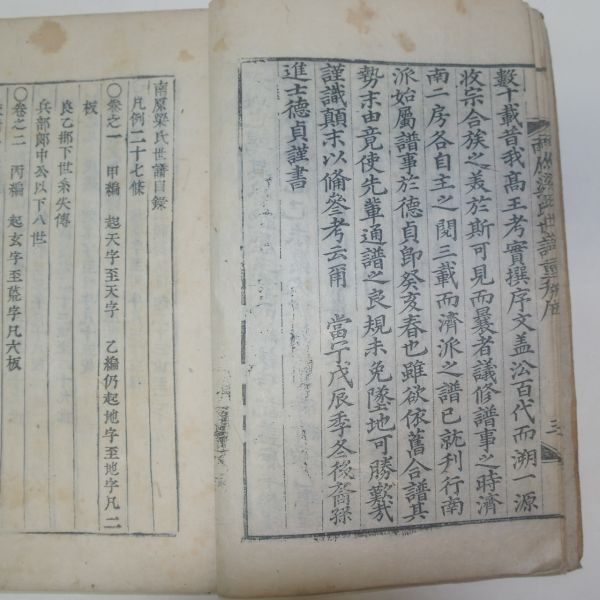 南原梁氏世譜重修序
三
數十載昔我高王考實撰序文盖㳂百代而溯一源
收宗合族之義於斯可見而曩者議修譜事之時濟
南二房各自主之閱三載而濟派之譜已就刋行南
派始屬譜事於德貞卽癸亥春也雖欲依舊合譜其
勢末由竟使先輩通譜之良規未免墜地可勝歎㦲
謹識顛末以備參考云爾 當宁戊辰季冬後裔孫
進士德貞謹書
南原梁氏世譜目錄
凡例二十七條
〇卷之一 甲編 起天字至天字 乙編仍起地字至地字凡二
板
良乙那下世系失傳
兵部郞中公以下八世
〇卷之二 丙編 起玄字至荒字凡六板